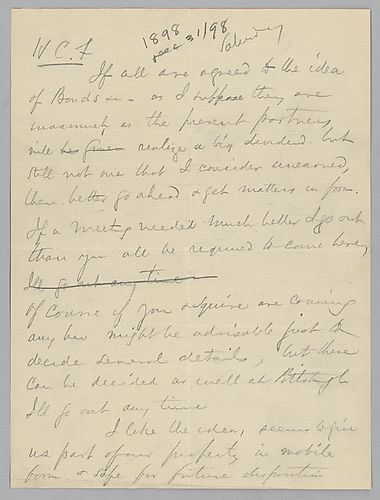 H C F
1898
Dec 31/98
Saturday
If all are agreed to the idea
of Bonds &c - as I suppose they are
inasmuch as the present partners
will be given realize a big dividend. but
still not one that I consider unearned,
then better go ahead & get matters in form.
If a meeting needed much better I go out
than you all be required to come here,
I'll go out any time
Of course if you & Squire are coming
any how might be advisable just to
decide several details, but these
can be decided as well at Pittsburgh
I'll go out any time
I like the idea, seems to give
us part of our property in mobile
form & safe for future disposition